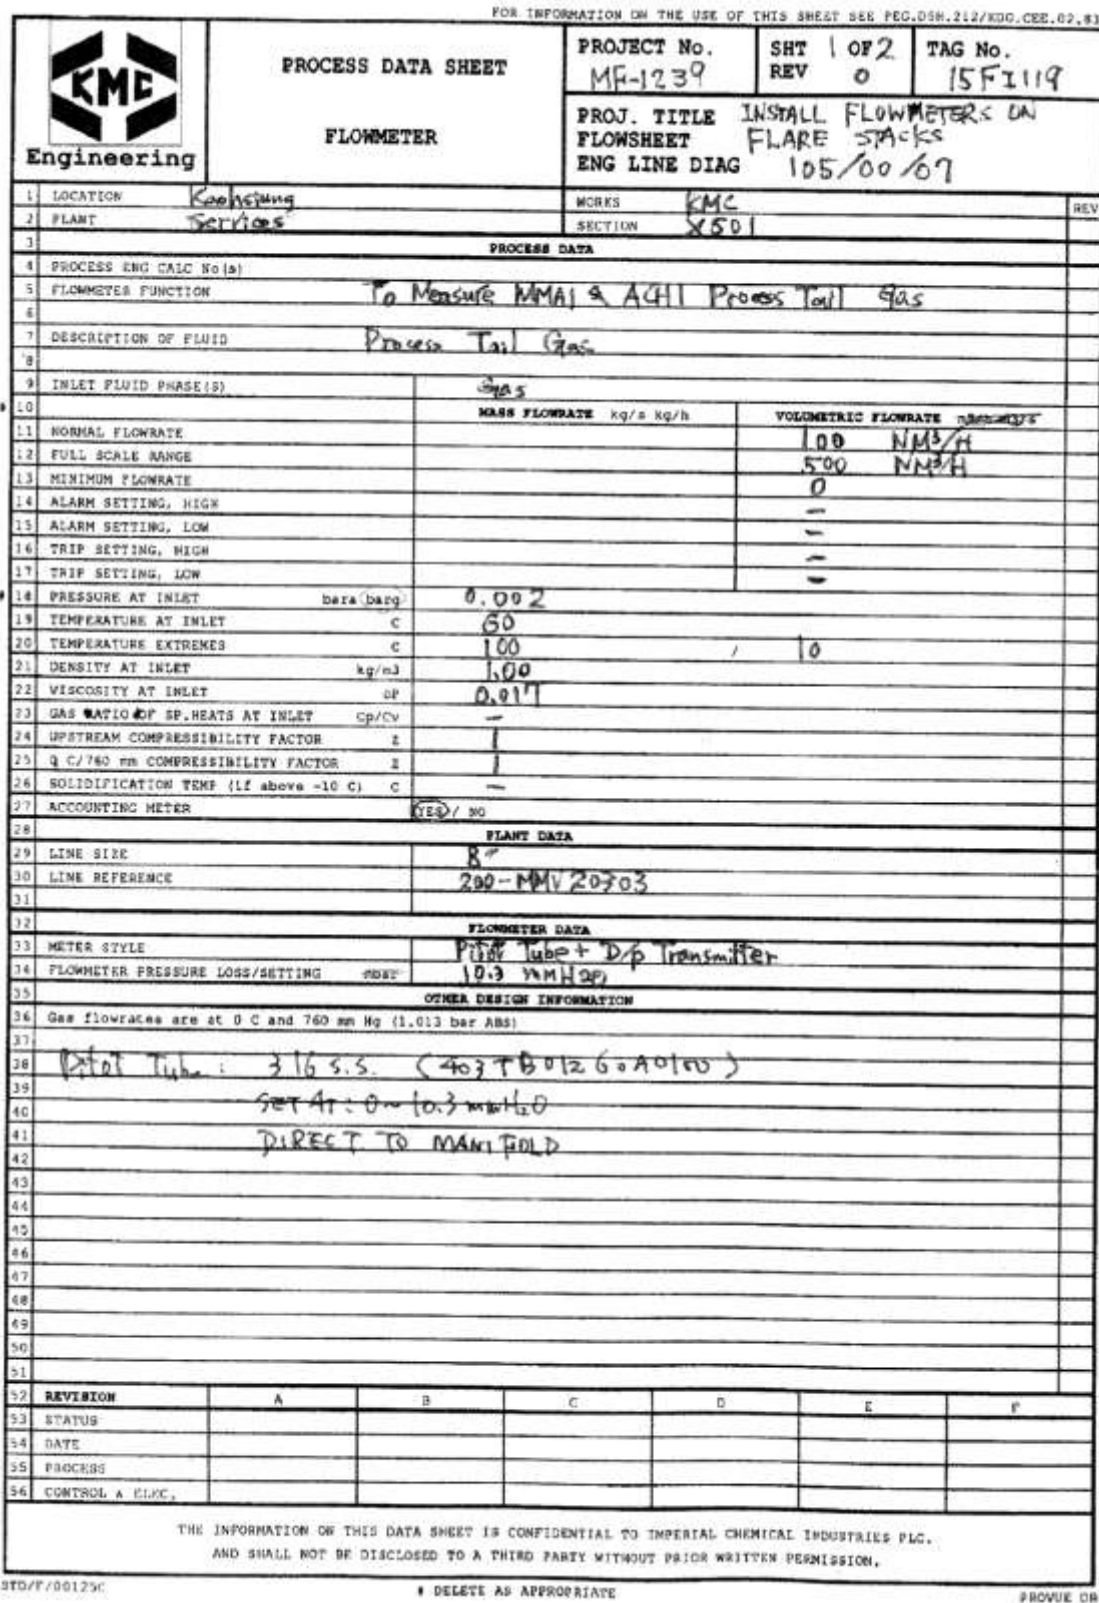 FOR INFORMATION ON THE USE OF THIS SHEET SEE PEG.DSH.212/KDG.CEE.02.83
KMC
Engineering
PROCESS DATA SHEET
FLOWMETER
PROJECT No. MF-1239
SHT 1 OF 2
REV 0
TAG No. 15FI119
PROJ. TITLE INSTALL FLOWMETERS ON
FLOWSHEET FLARE STACKS
ENG LINE DIAG 105/00/07
1 LOCATION WORKS KMC REV
2 PLANT Services SECTION X501
3 PROCESS DATA
4 PROCESS ENG CALC No(s)
5 FLOWMETER FUNCTION To Measure MMA1 & ACH1 Process Tail gas
6
7 DESCRIPTION OF FLUID Process Tail Gas
8
9 INLET FLUID PHASE(S) Gas
10 MASS FLOWRATE kg/s kg/h VOLUMETRIC FLOWRATE
11 NORMAL FLOWRATE 100 NM3/H
12 FULL SCALE RANGE 500 NM3/H
13 MINIMUM FLOWRATE 0
14 ALARM SETTING, HIGH -
15 ALARM SETTING, LOW -
16 TRIP SETTING, HIGH -
17 TRIP SETTING, LOW -
18 PRESSURE AT INLET bara barg 0.002
19 TEMPERATURE AT INLET C 60
20 TEMPERATURE EXTREMES C 100 / 10
21 DENSITY AT INLET kg/m3 1.00
22 VISCOSITY AT INLET cP 0.017
23 GAS RATIO OF SP.HEATS AT INLET Cp/Cv -
24 UPSTREAM COMPRESSIBILITY FACTOR Z 1
25 0 C/760 mm COMPRESSIBILITY FACTOR Z 1
26 SOLIDIFICATION TEMP (if above -10 C) C -
27 ACCOUNTING METER YES / NO
28 PLANT DATA
29 LINE SIZE 8"
30 LINE REFERENCE 200-MMV20703
31
32 FLOWMETER DATA
33 METER STYLE Pitot Tube + D/p Transmitter
34 FLOWMETER PRESSURE LOSS/SETTING mbar 10.3 mmH2O
35 OTHER DESIGN INFORMATION
36 Gas flowrates are at 0 C and 760 mm Hg (1.013 bar ABS)
37
38 Pitot Tube : 316 S.S.
39
40 SET AT : 0~10.3 mmH2O
41 DIRECT TO MANIFOLD
42
43
44
45
46
47
48
49
50
51
52 REVISION A B C D E F
53 STATUS
54 DATE
55 PROCESS
56 CONTROL & ELEC.
THE INFORMATION ON THIS DATA SHEET IS CONFIDENTIAL TO IMPERIAL CHEMICAL INDUSTRIES PLC.
AND SHALL NOT BE DISCLOSED TO A THIRD PARTY WITHOUT PRIOR WRITTEN PERMISSION.
STD/F/00125C
# DELETE AS APPROPRIATE
PROVUE DB